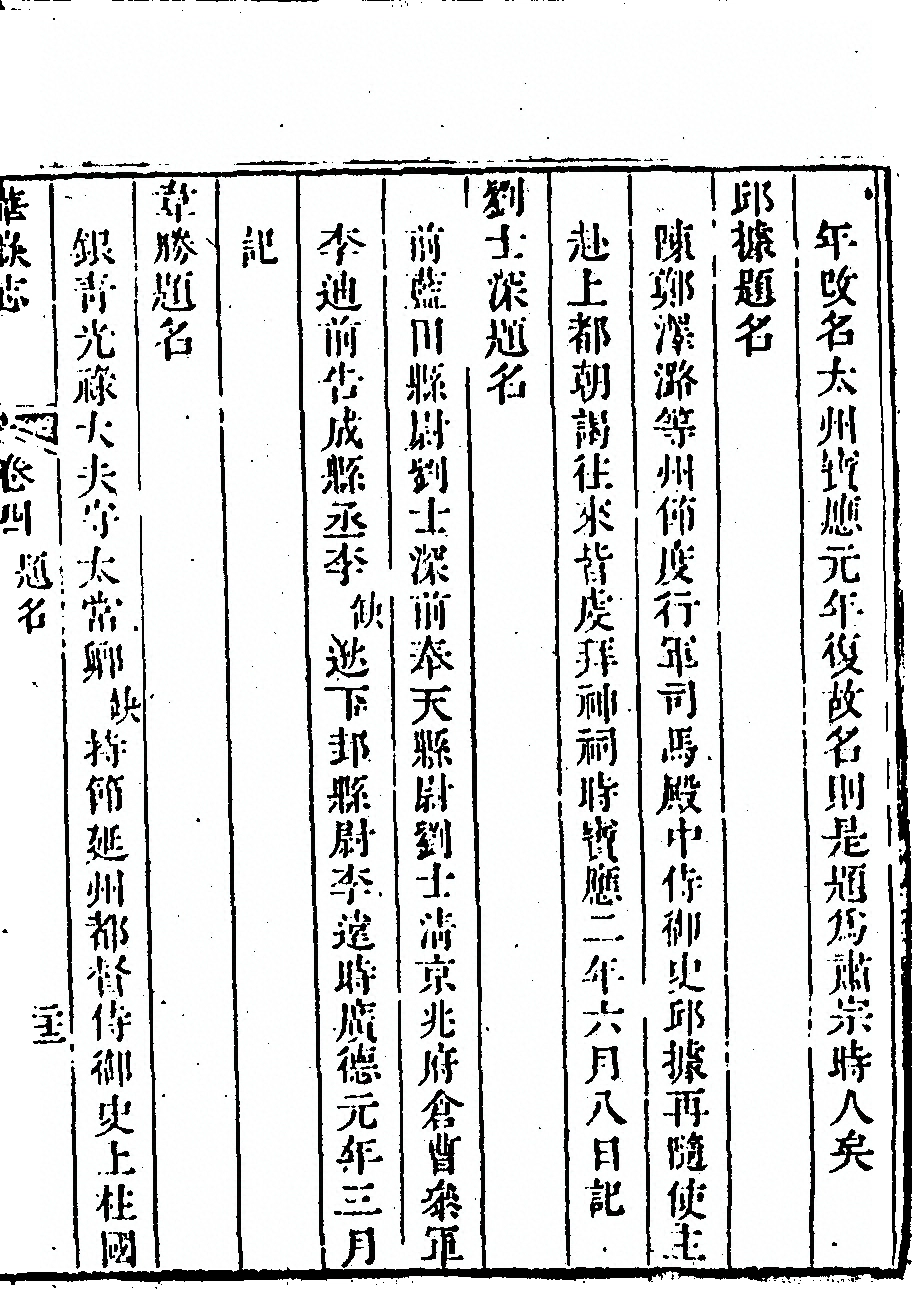 年改名太州寶應元年復故名則是題爲肅宗時人矣
邱據題名
陳鄭澤潞等州節度行軍司馬殿中侍御史邱據再隨使主
赴上都朝謁往來皆虔拜神祠時寶應二年六月八日記
劉士深題名
前藍田縣尉劉士深前奉天縣尉劉士清京兆府倉曹叅軍
李迪前告成縣丞李缺逖下邽縣尉李遠時廣德元年三月
記
韋勝題名
銀青光祿大夫守太常卿缺持節延州都督侍御史上柱國
華嶽志
卷四
題名